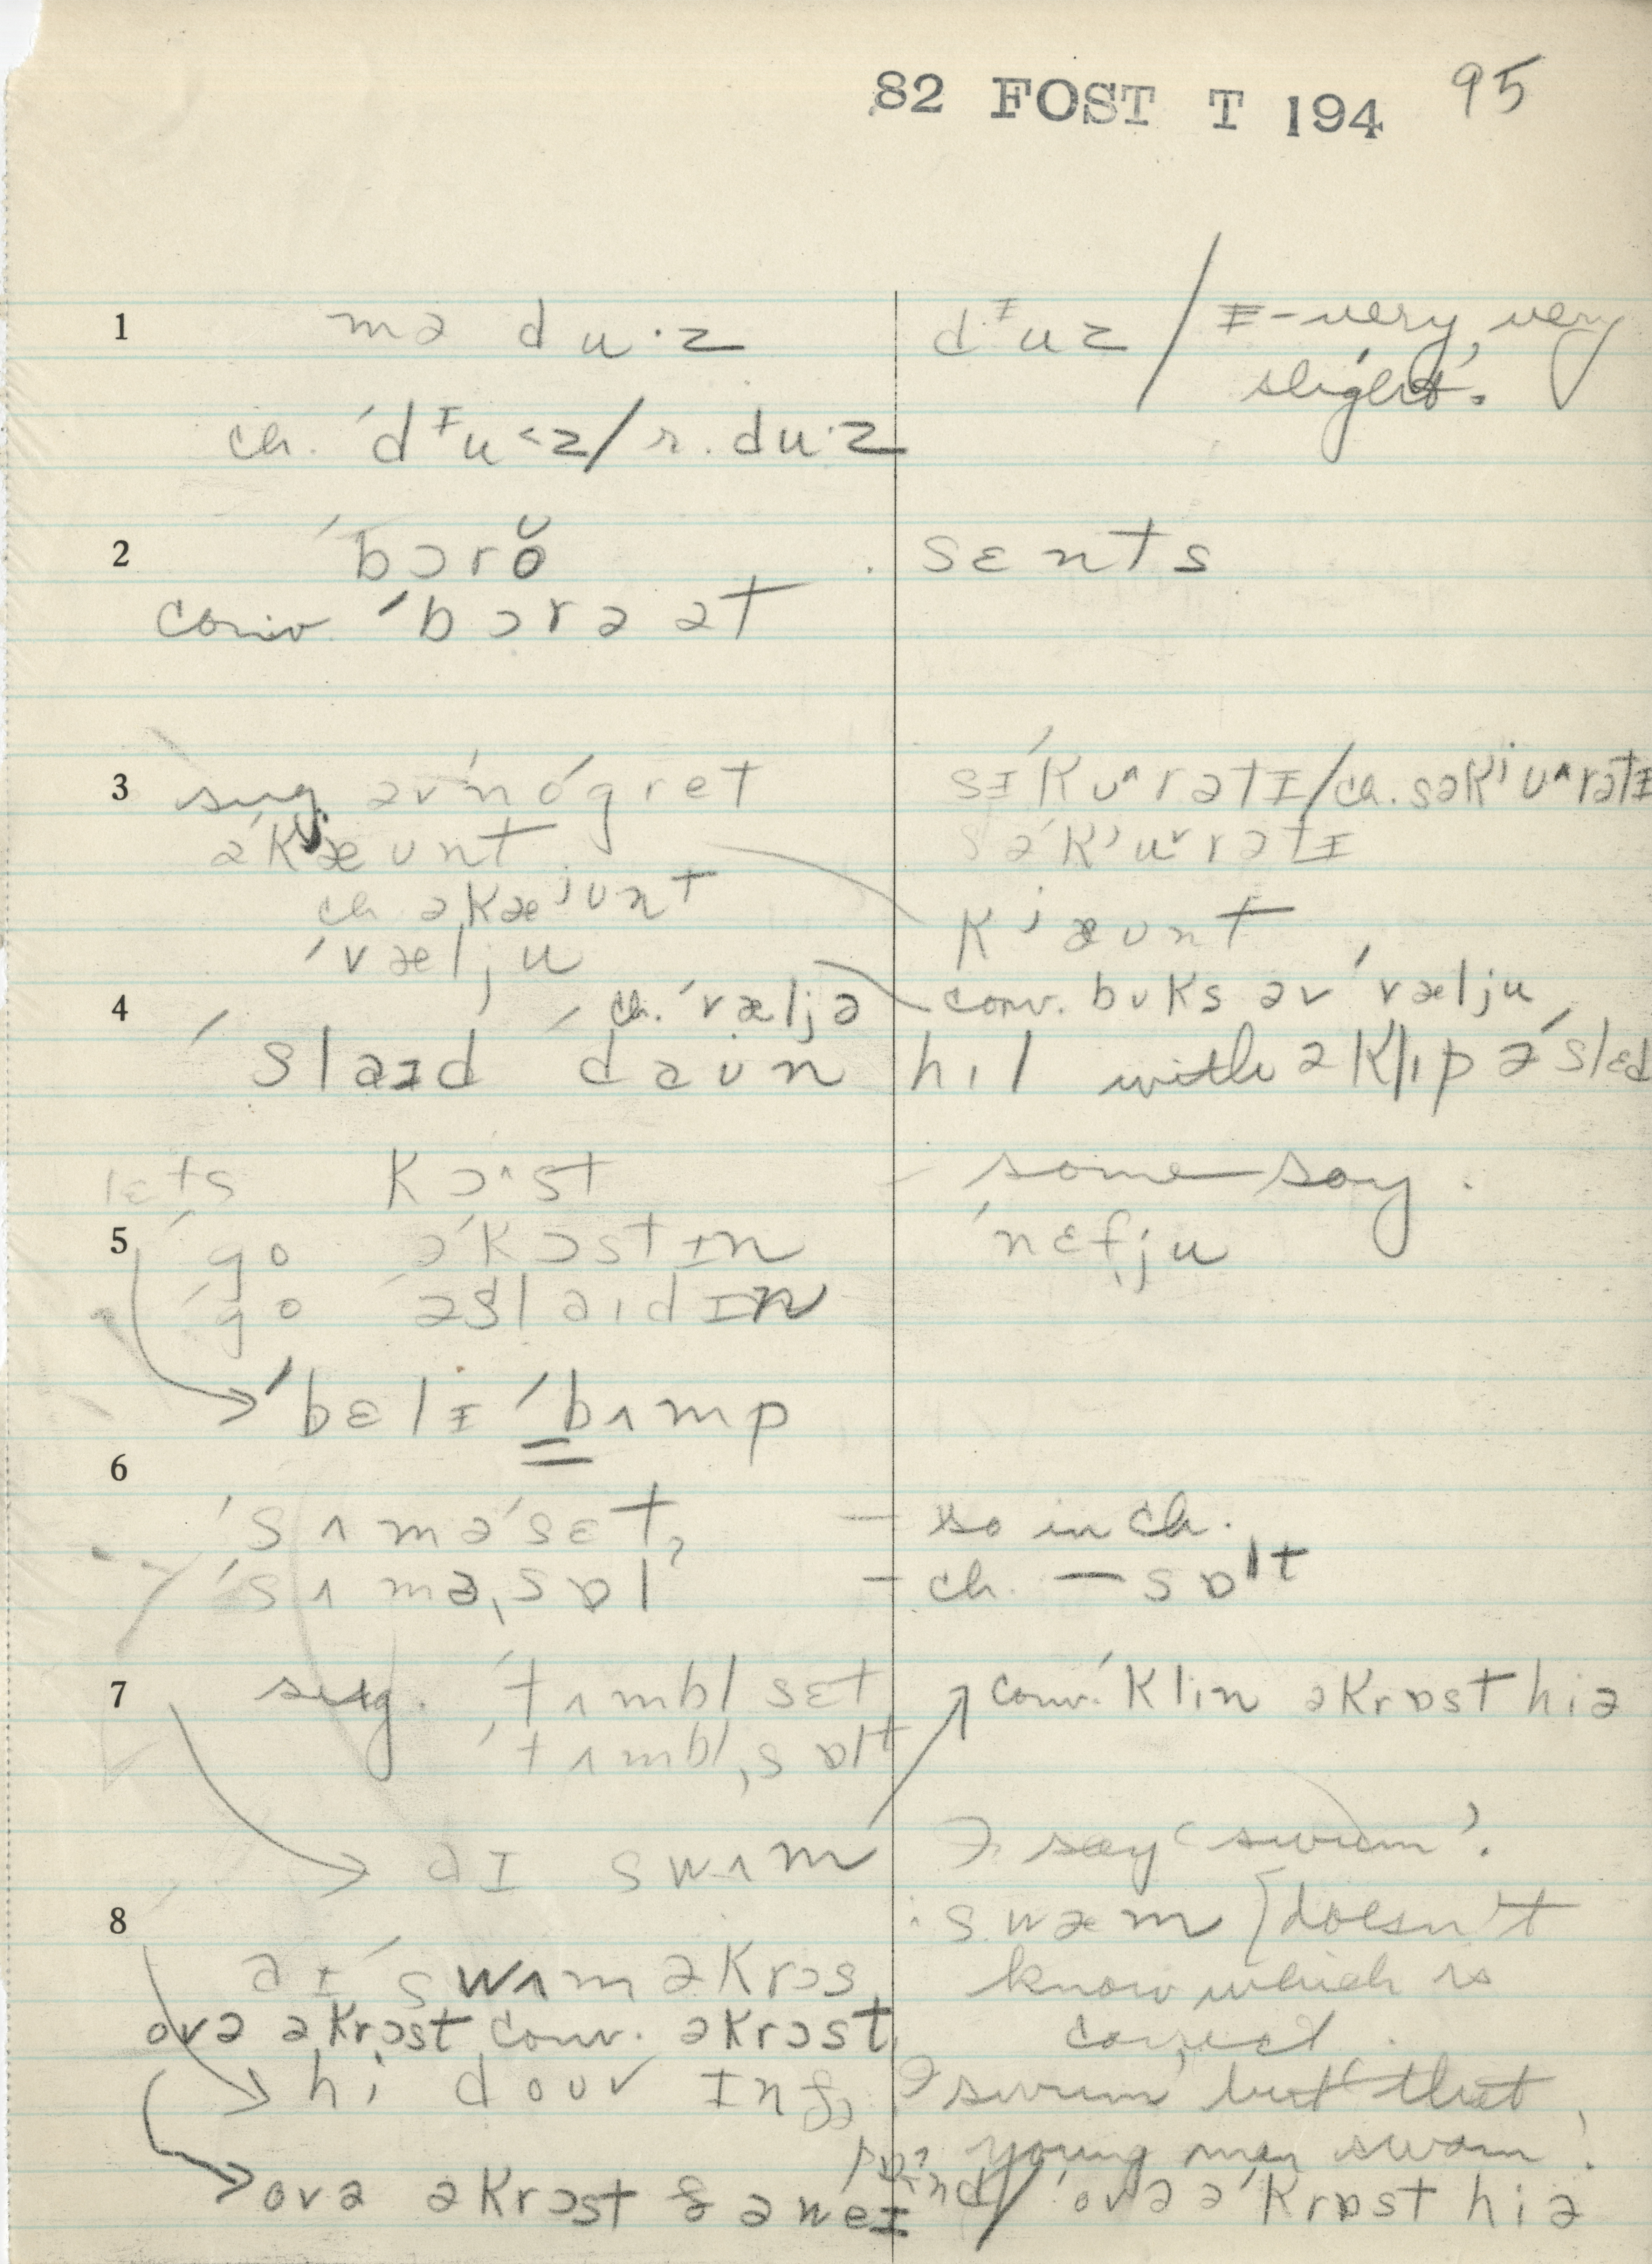 82 FOST T 194 95
1 mə du·z dᶦuz / ɪ-very, very
slight.
ch. ˈdᶦu<z / r. du·z
2 ˈbɔrŏ sɛnts
conv. ˈbɔrə ət
3 sug. əvˈnóɡret sɪˈkʊ^rətɪ / ch. səkʲʊ^rətɪ
əˈkæʊnt səˈkʲuˇrətɪ
ch əkæʲʊnt kʲæʊnt
ˈvælju
4 ch. ˈvæljə conv. bʊks əv ˈvælju
ˈslaɪd ˈdaʊn hɪl with ə klɪpəˈslɛd
lɛts kɔ^st - some say.
5 ˈɡo əˈkɔstɪn ˈnɛfju
ˈɡo əˈslaɪdɪn
ˈbɛlɪ ˈbʌmp
6
ˈsʌməˈsɛt - so in ch.
ˈsʌməˌsɒlˀ - ch. — sɒlt
7 sug. ˈtʌmbl sɛt conv. ˈklin əkrɒst hiə
ˈtʌmblˌsɒlt
aɪ swʌm I say 'swum'.
8 swæm {doesn't
aɪ ˈswʌm əkrɔs know which is
ovə əkrɔst conv. əkrɔst correct.
hi doʊv ɪn I swum, but 'that
young man swam'.
ovə əkrɔst & əweɪ / ˈovə əˈkrɒst hiə